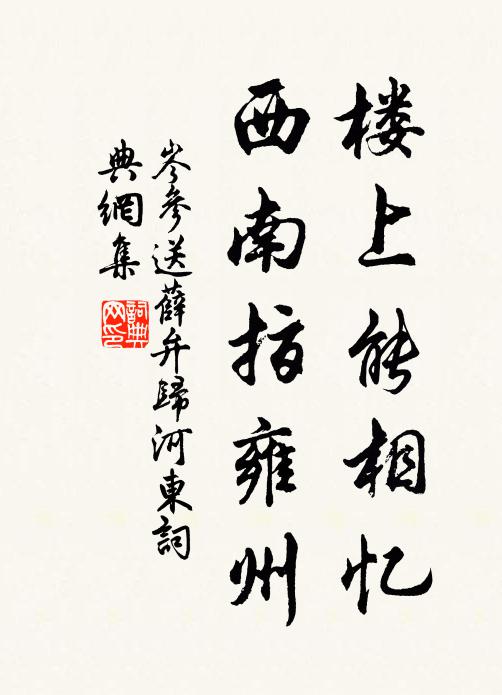 楼上能相忆
西南指雍州
岑參送薛弁歸河東詞
典網集
詞典
网印